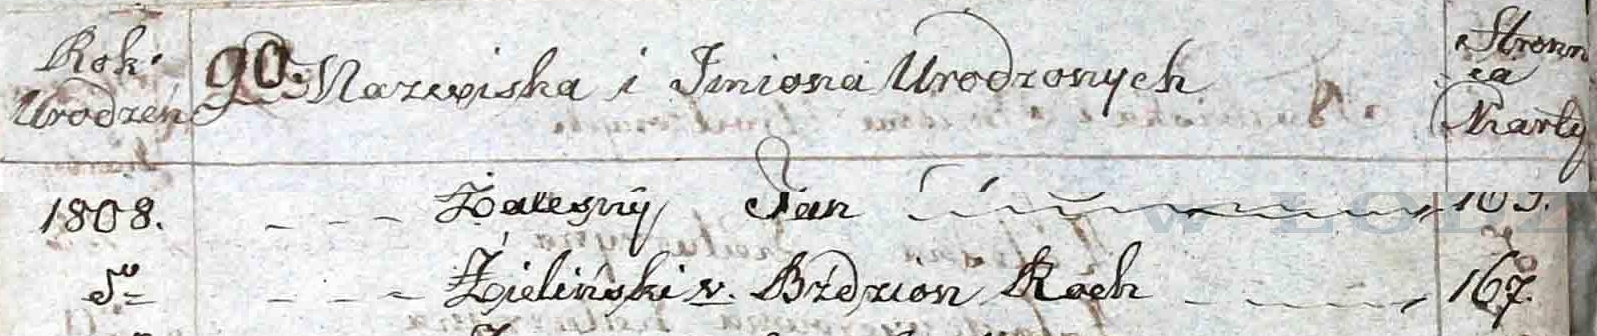 Rok
Urodzeń
90. Nazwiska i Imiona Urodzonych
Stronn
ca
Karty
1808. - - - Zalesny Jan
dº - - - Zieliński v. Bździon Roch - - - 167.
W ŁODZ